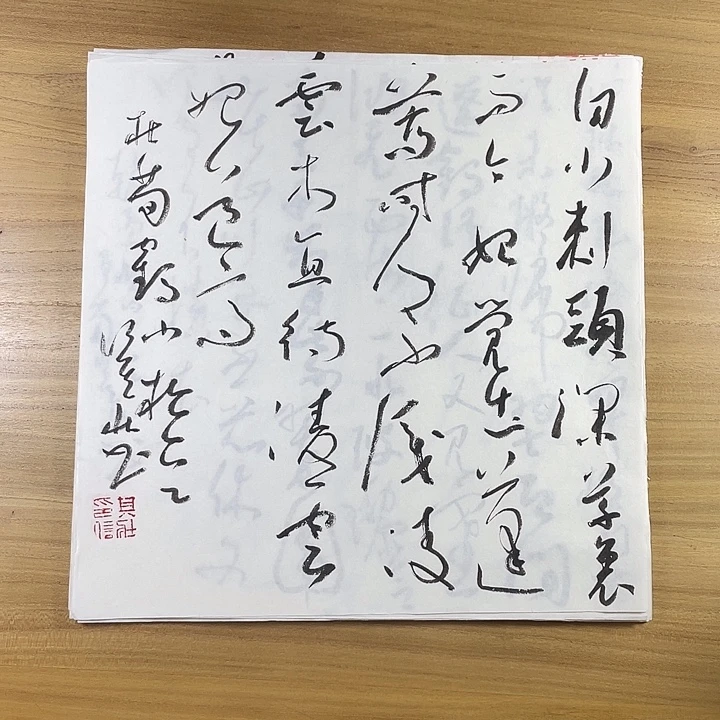 自小刺頭深草裏
而今始覺出蓬
蒿時人不識凌
雲木直待凌雲
始道高
杜荀鶴小松